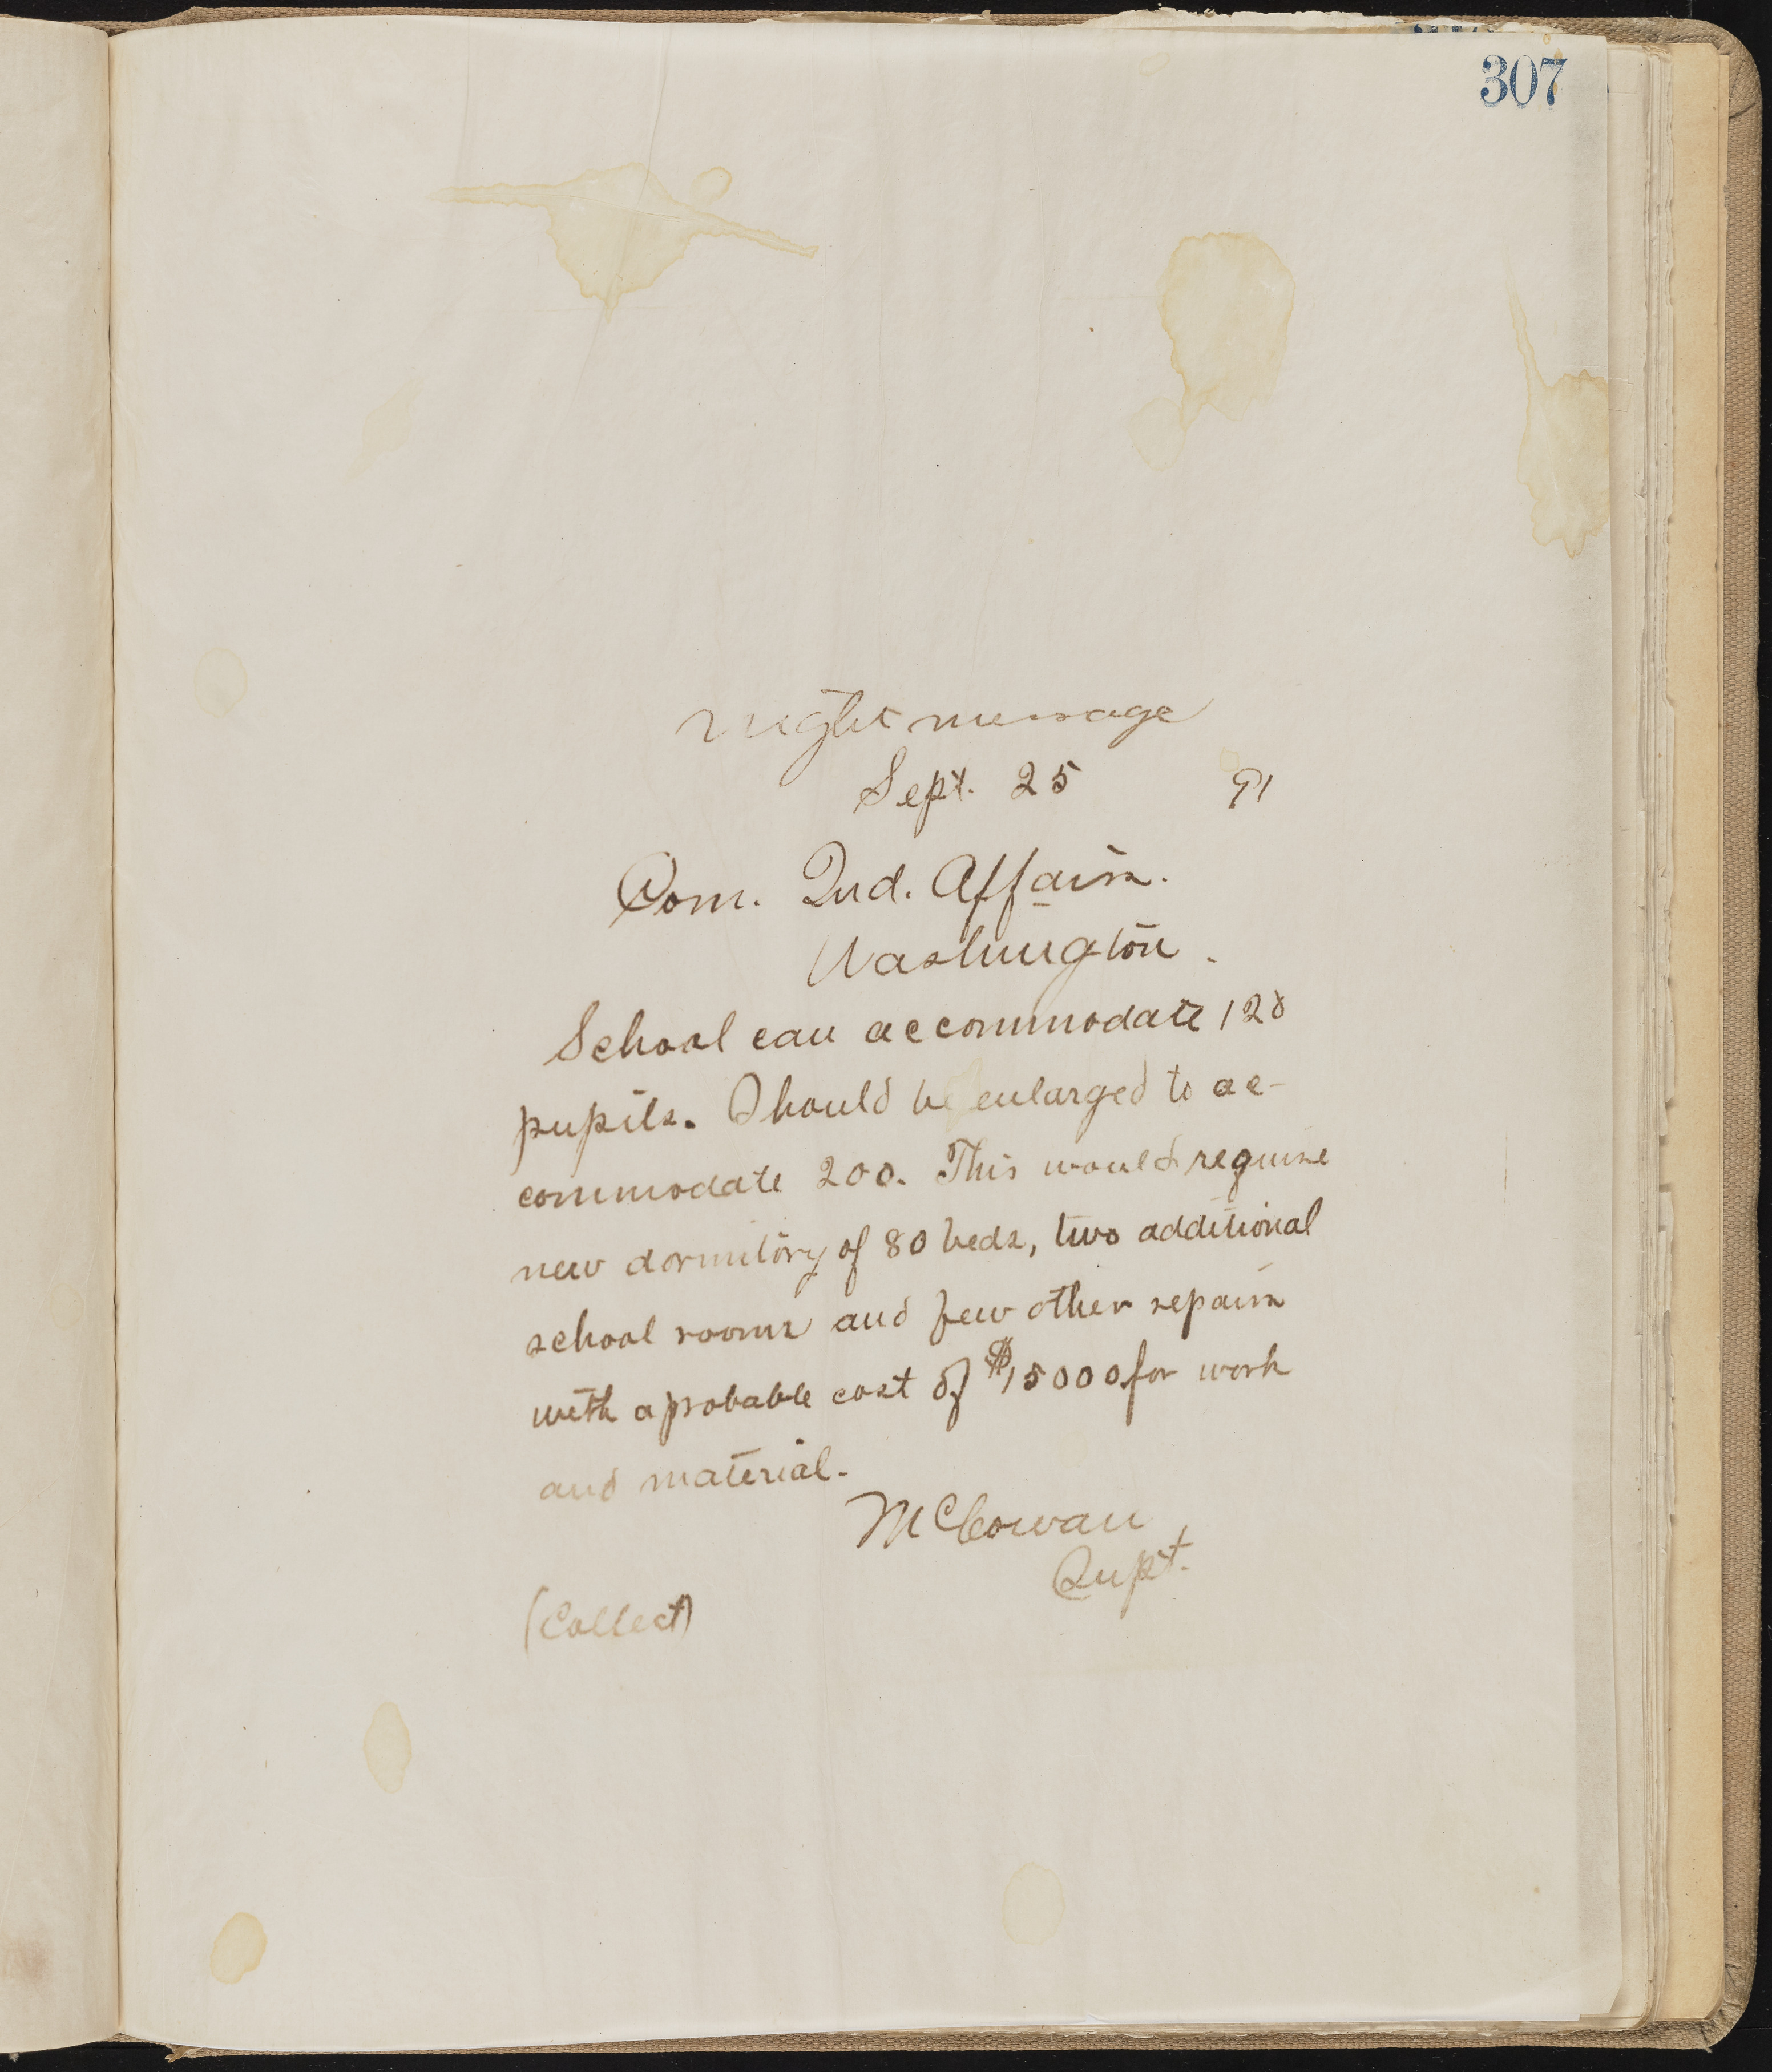 307
Night message
Sept. 25 91
Com. Ind. Affairs.
Washington.
School can accommodate 120
pupils. Should be enlarged to ac-
commodate 200. This would require
new dormitory of 80 beds, two additional
school rooms and few other repairs
with a probable cost of $15000 for work
and material.
McCowan
Supt.
(Collect)